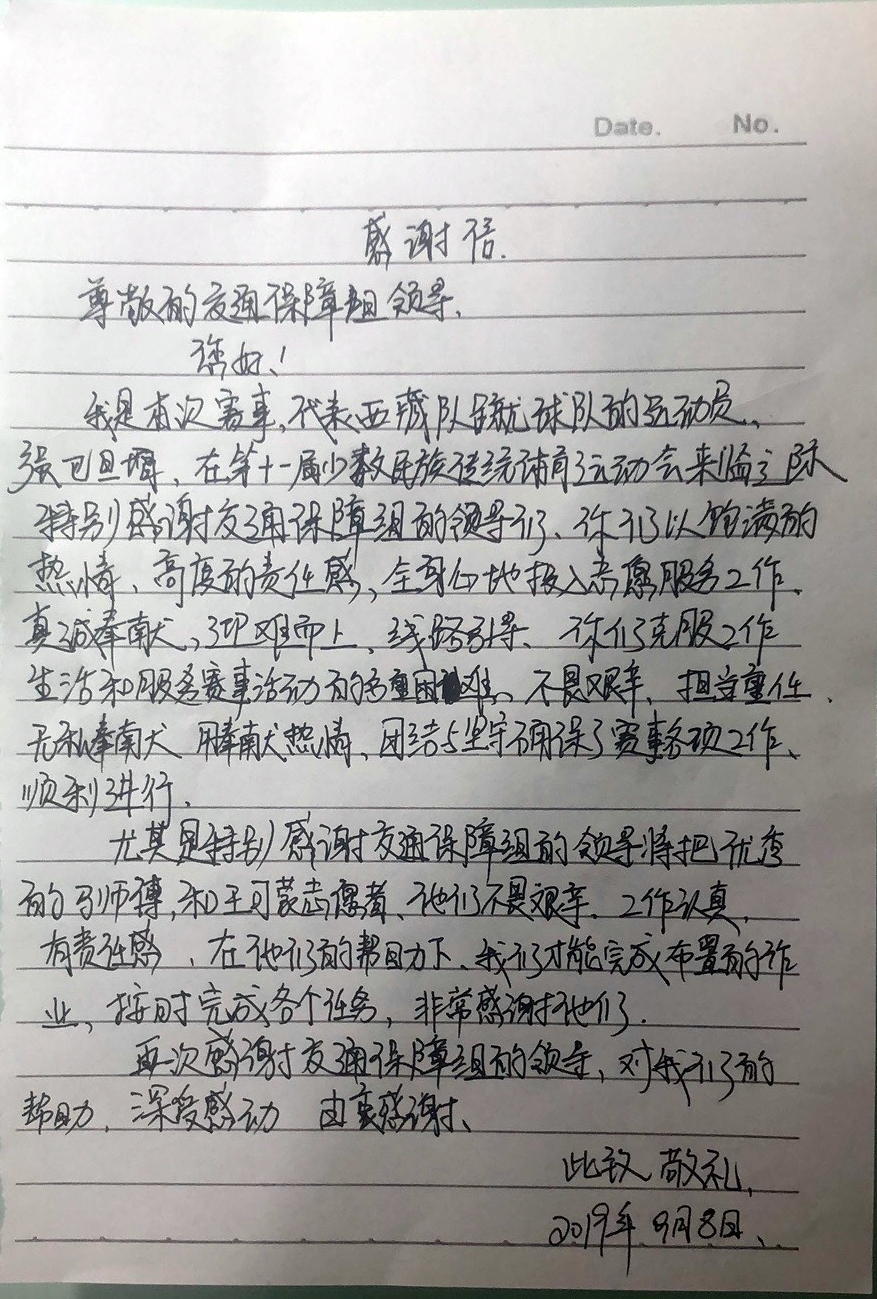 Date. No.
感谢信.
尊敬的交通保障组领导、
您好、!
我是有次赛事,代表西藏队毽球队的运动员、
强巴旦增、在第十一届少数民族传统体育运动会来临之际
特别感谢交通保障组的领导们、你们以饱满的
热情、高度的责任感、全身心地投入志愿服务工作、
真诚奉献,迎难而上、线路引导、你们克服工作
生活和服务赛事活动的多重困难、不畏艰辛、担当重任、
无私奉献 用奉献热情、团结与坚守确保了赛事各项工作、
顺利进行.
尤其是特别感谢交通保障组的领导将把优秀
的 师傅,和王可蒙志愿者、他们不畏艰辛、工作认真,
有责任感、在他们的帮助下、我们才能完成布置的作
业、按时完成各个任务,非常感谢他们.
再次感谢交通保障组的领导、对我们的
帮助、深受感动 由衷感谢、
此致 敬礼、
2019年9月8日、